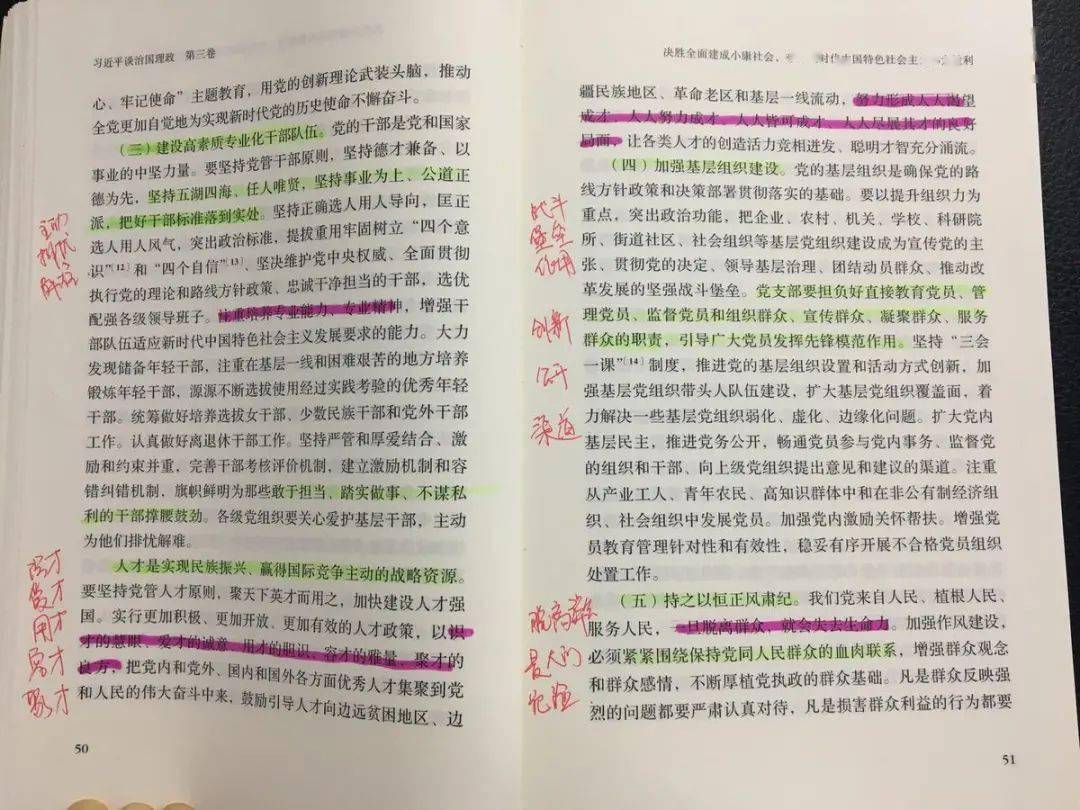 习近平谈治国理政 第三卷
心、牢记使命”主题教育，用党的创新理论武装头脑，推动
全党更加自觉地为实现新时代党的历史使命不懈奋斗。
（三）建设高素质专业化干部队伍。党的干部是党和国家
事业的中坚力量。要坚持党管干部原则，坚持德才兼备、以
德为先，坚持五湖四海、任人唯贤，坚持事业为上、公道正
派，把好干部标准落到实处。坚持正确选人用人导向，匡正
选人用人风气，突出政治标准，提拔重用牢固树立“四个意
识”[12]和“四个自信”[13]、坚决维护党中央权威、全面贯彻
执行党的理论和路线方针政策、忠诚干净担当的干部，选优
配强各级领导班子。注重培养专业能力、专业精神，增强干
部队伍适应新时代中国特色社会主义发展要求的能力。大力
发现储备年轻干部，注重在基层一线和困难艰苦的地方培养
锻炼年轻干部，源源不断选拔使用经过实践考验的优秀年轻
干部。统筹做好培养选拔女干部、少数民族干部和党外干部
工作。认真做好离退休干部工作。坚持严管和厚爱结合、激
励和约束并重，完善干部考核评价机制，建立激励机制和容
错纠错机制，旗帜鲜明为那些敢于担当、踏实做事、不谋私
利的干部撑腰鼓劲。各级党组织要关心爱护基层干部，主动
为他们排忧解难。
人才是实现民族振兴、赢得国际竞争主动的战略资源。
要坚持党管人才原则，聚天下英才而用之，加快建设人才强
国。实行更加积极、更加开放、更加有效的人才政策，以识
才的慧眼、爱才的诚意、用才的胆识、容才的雅量、聚才的
良方，把党内和党外、国内和国外各方面优秀人才集聚到党
和人民的伟大奋斗中来，鼓励引导人才向边远贫困地区、边
50
主动
用才
聚才
决胜全面建成小康社会，
时代中国特色社会主
胜利
疆民族地区、革命老区和基层一线流动，努力形成人人渴望
成才、人人努力成才、人人皆可成才、人人尽展其才的良好
局面，让各类人才的创造活力竞相迸发、聪明才智充分涌流。
（四）加强基层组织建设。党的基层组织是确保党的路
线方针政策和决策部署贯彻落实的基础。要以提升组织力为
重点，突出政治功能，把企业、农村、机关、学校、科研院
所、街道社区、社会组织等基层党组织建设成为宣传党的主
张、贯彻党的决定、领导基层治理、团结动员群众、推动改
革发展的坚强战斗堡垒。党支部要担负好直接教育党员、管
理党员、监督党员和组织群众、宣传群众、凝聚群众、服务
群众的职责，引导广大党员发挥先锋模范作用。坚持“三会
一课”[14]制度，推进党的基层组织设置和活动方式创新，加
强基层党组织带头人队伍建设，扩大基层党组织覆盖面，着
力解决一些基层党组织弱化、虚化、边缘化问题。扩大党内
基层民主，推进党务公开，畅通党员参与党内事务、监督党
的组织和干部、向上级党组织提出意见和建议的渠道。注重
从产业工人、青年农民、高知识群体中和在非公有制经济组
织、社会组织中发展党员。加强党内激励关怀帮扶。增强党
员教育管理针对性和有效性，稳妥有序开展不合格党员组织
处置工作。
（五）持之以恒正风肃纪。我们党来自人民、植根人民、
服务人民，一旦脱离群众，就会失去生命力。加强作风建设，
必须紧紧围绕保持党同人民群众的血肉联系，增强群众观念
和群众感情，不断厚植党执政的群众基础。凡是群众反映强
烈的问题都要严肃认真对待，凡是损害群众利益的行为都要
51
战斗
堡垒
作用
创新
渠道
脱离群众
是大门